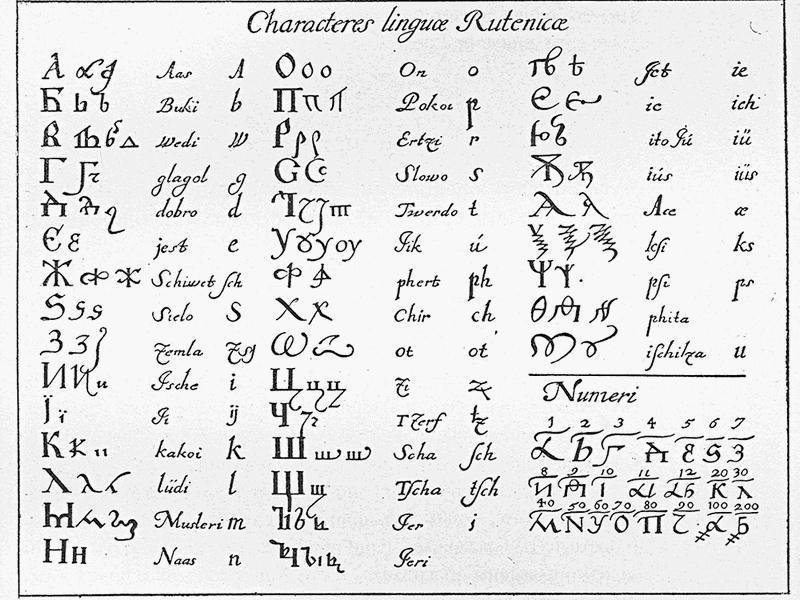 Characteres linguæ Rutenicæ
А Aas A
Б Ь Ъ Buki b
В wedi w
Г glagol g
Д dobro d
Є ε jest e
Ж Schiwet ſch
Ѕ Sielo S
З З Zemla
И И и Ische i
Ї ї Ji ij
К к kakoi k
Λ λ lüdi l
М Musleri m
Н н Naas n
О о о On o
П п Pokoi p
Р р р Ertzi r
С С Slowo s
Т Twerdo t
У ȣ у оу Jik ú
Ф phert ph
Х х Chir ch
Ѡ ot ot
Ц ц ц Zi z
Ч Tzerf tz
Ш ш ш Scha ſch
Щ щ Tſcha tſch
Ъ Jer j
Jeri
Jet ie
Є є ie ich
Ю ito Jú iü
Ѫ iús iüs
Ѧ Ace æ
Ѯ kſi ks
Ѱ Ѱ pſi ps
Ѳ phita
iſchitza u
Numeri
1 2 3 4 5 6 7
α Б Г Д Є Ѕ З
8 9 10 11 12 20 30
И Ѳ І αι αБ К λ
40 50 60 70 80 90 100 200
М N У О П Ҁ α Б